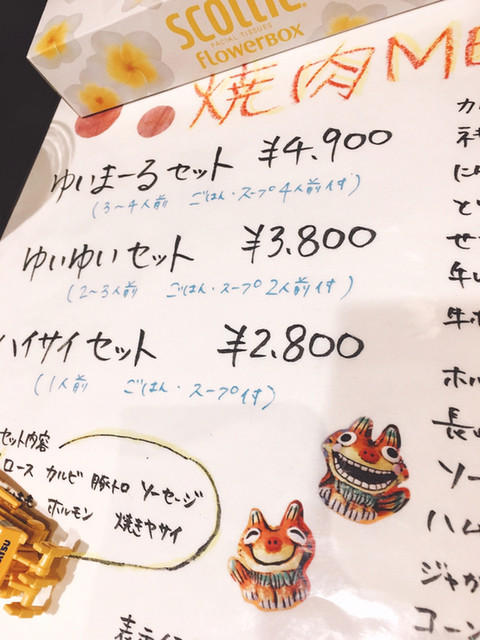 SCOTTIE
FACIAL TISSUES
FLOWERBOX
焼肉ME
ゆいまーるセット ¥4.900
(3~4人前 ごはん・スープ4人前付)
ゆいゆいセット ¥3.800
(2~3人前 ごはん・スープ2人前付)
ハイサイセット ¥2.800
(1人前 ごはん・スープ付)
セット内容
ロース カルビ 豚トロ ソーセージ
ホルモン 焼きヤサイ
カ
ネ
に
と
せ
牛
牛ホ
ホル
長
ソー
ハム
ジャガ
コーン
表示